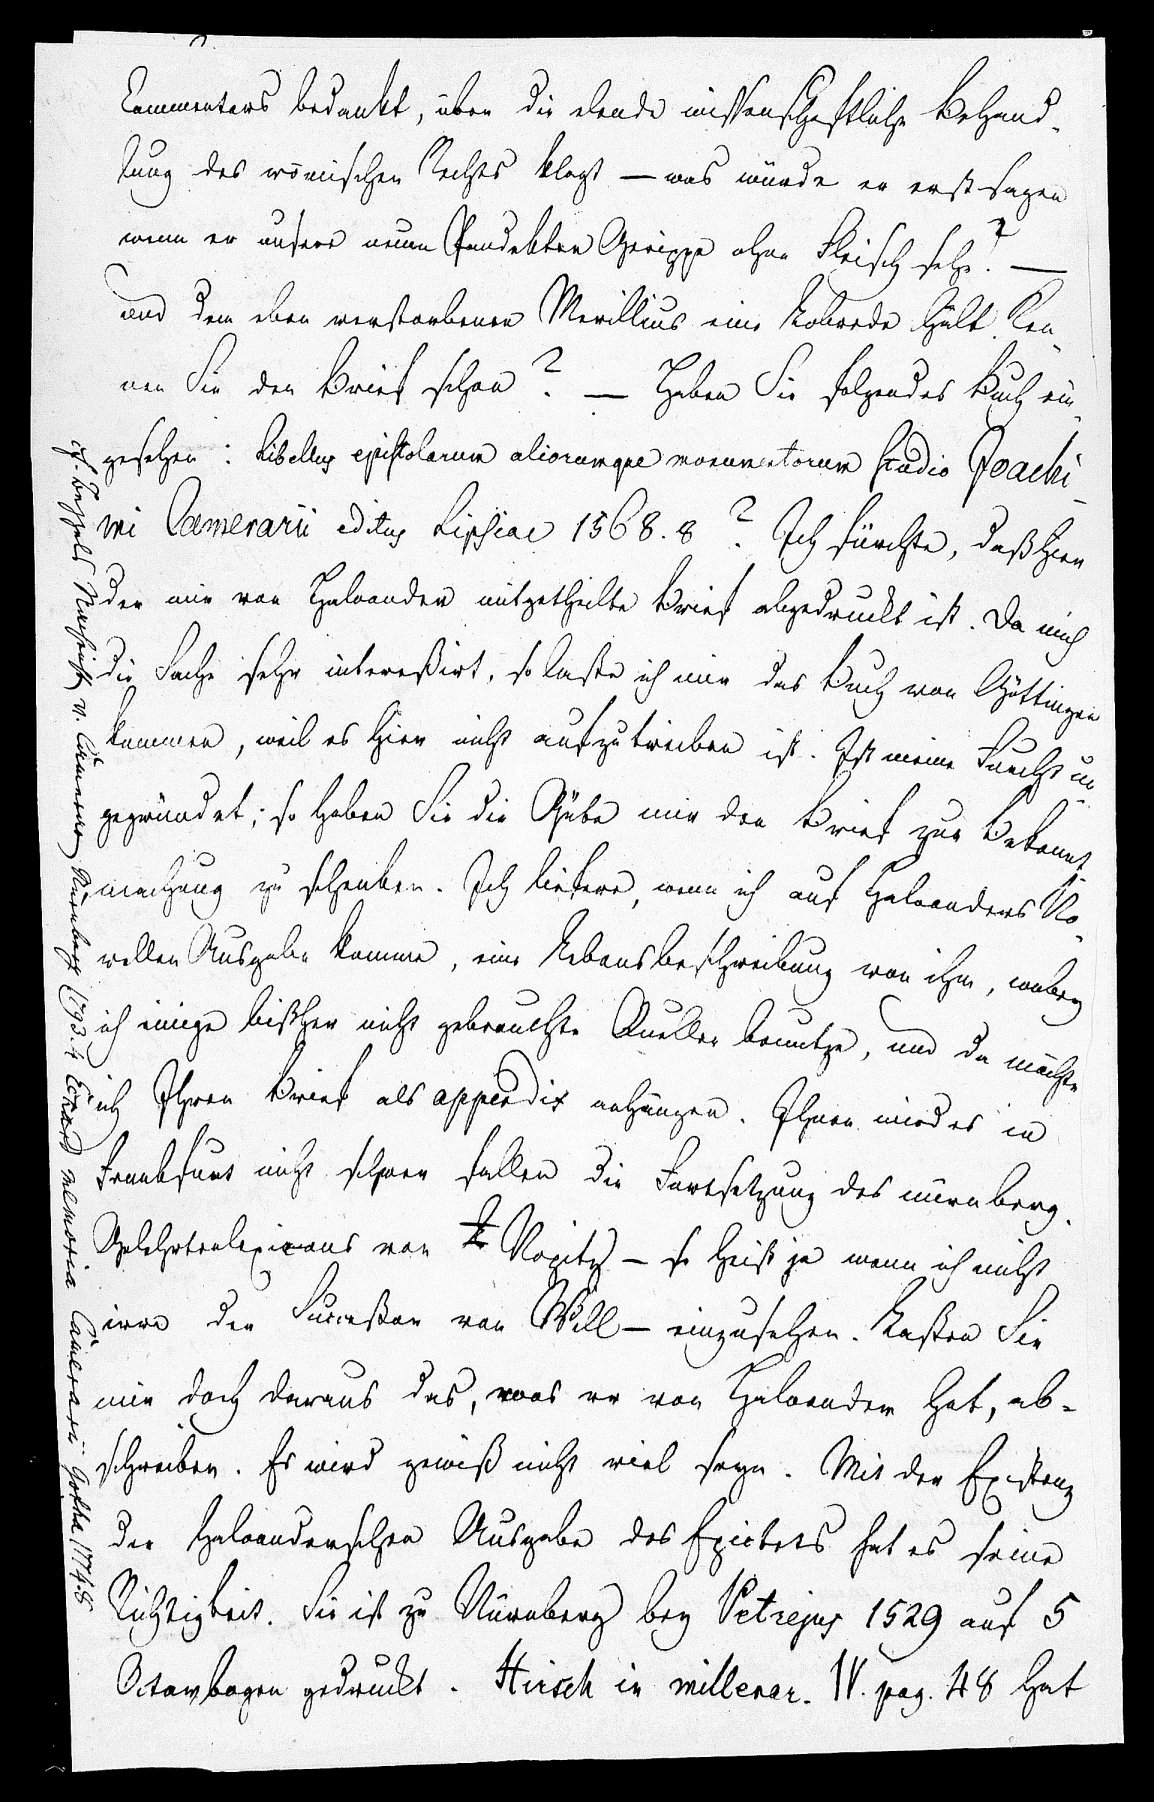 Commentars bedankt, über die elende wissenschaftliche Behand-
lung des römischen Rechts klagt — was würde er erst sagen
wenn er unsere neuen Pandekten Gerippe ohne Fleisch sehe? —
und dem eben verstorbenen Merillius eine Lobrede hält. Ken-
nen Sie den Brief schon? — Haben Sie folgendes Buch ein-
gesehen: Libellus epistolarum aliorumque monumentorum studio Joachi-
mi Camerarii editus Lipsiae 1568. 8? Ich fürchte, daß hier
der mir von Haloander mitgetheilte Brief abgedruckt ist. Da mich
die Sache sehr intereßirt, so laße ich mir das Buch von Göttingen
kommen, weil es hier nicht aufzutreiben ist. Ist meine Furcht un-
gegründet; so haben Sie die Güte mir den Brief zur Bekannt-
machung zu schenken. Ich liefere, wenn ich auf Haloanders No-
vellen Ausgabe komme, eine Lebensbeschreibung von ihm, wobey
ich einige bißher nicht gebrauchte Quellen benutze, und da möchte
ich Ihren Brief als appendix anhängen. Ihnen wird es in
Frankfurt nicht schwer fallen die Fortsetzung des nürnberg.
Gelehrtenlexicons von Nopitz — so heist ja wenn ich nicht
irre der Succeßor von Will — einzusehen. Laßen Sie
mir doch daraus das, was er von Haloander hat, ab-
schreiben. Es wird gewiß nicht viel seyn. Mit der Existenz
der Haloanderschen Ausgabe des Epictets hat es seine
Richtigkeit. Sie ist zu Nürnberg bey Petrejus 1529 auf 5
Octavbogen gedruckt. Hirsch in millenar. IV. pag. 48 hat
cf. Nachricht v. Camerar Nürnberg 1793. 4 Eckard memoria Camerarii Gotha 1774. 8